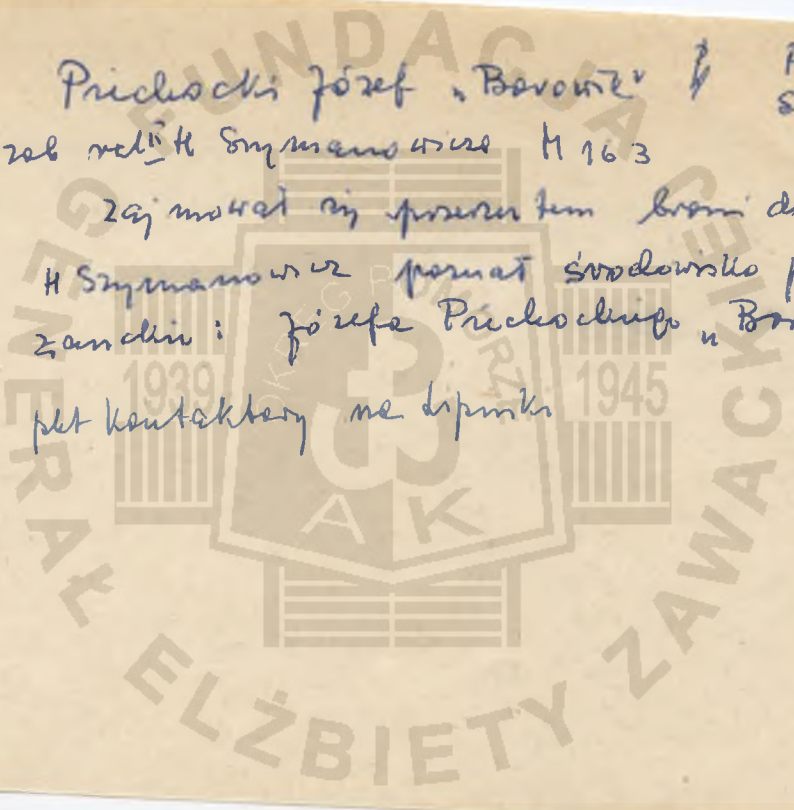 Priechocki Józef „Borowik"
zob rel. II H Szymanowicza M 163
zajmował się przerzutem broni
H Szymanowicz poznał środowisko
Józefa Priechockiego „
pkt kontaktowy na Lipniki
FUNDACJA GENERAŁ ELŻBIETY ZAWACKIEJ
OKRĘG POMORZE
1939 1945
AK